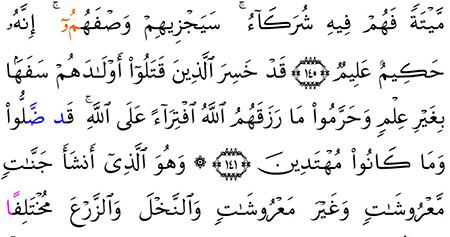 مَّيْتَةً فَهُمْ فِيهِ شُرَكَآءُ ۚ سَيَجْزِيهِمْ وَصْفَهُمُۥٓ ۚ إِنَّهُۥ
حَكِيمٌ عَلِيمٌ ١٤٠ قَدْ خَسِرَ ٱلَّذِينَ قَتَلُوٓا۟ أَوْلَٰدَهُمْ سَفَهَۢا
بِغَيْرِ عِلْمٍ وَحَرَّمُوا۟ مَا رَزَقَهُمُ ٱللَّهُ ٱفْتِرَآءً عَلَى ٱللَّهِ ۚ قَد ضَّلُّوا۟
وَمَا كَانُوا۟ مُهْتَدِينَ ١٤١ ۞ وَهُوَ ٱلَّذِىٓ أَنشَأَ جَنَّٰتٍ
مَّعْرُوشَٰتٍ وَغَيْرَ مَعْرُوشَٰتٍ وَٱلنَّخْلَ وَٱلزَّرْعَ مُخْتَلِفًا